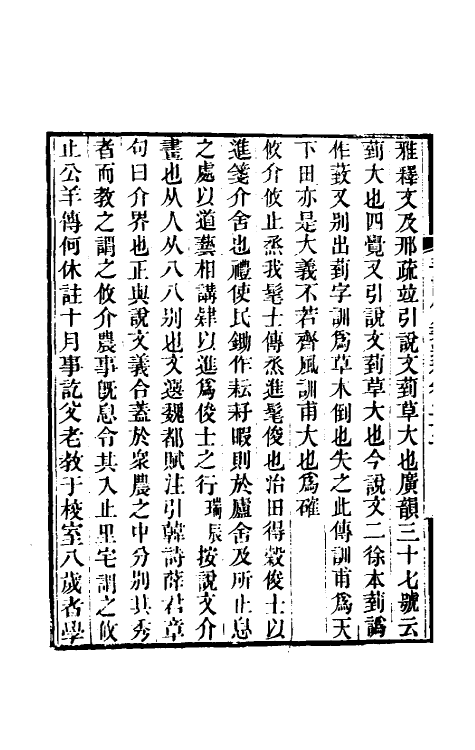 雅釋文及邢疏竝引說文菿草大也廣韻三十七號云
菿大也四覺又引說文菿草大也今說文二徐本菿譌
作蔎又別出菿字訓爲草木倒也失之此傳訓甫爲天
下田亦是大義不若齊風訓甫大也爲確
攸介攸止烝我髦士傳烝進髦俊也治田得穀俊士以
進箋介舍也禮使民鋤作耘耔暇則於廬舍及所止息
之處以道藝相講肄以進爲俊士之行瑞辰按說文介
畫也从人从八八別也文選魏都賦注引韓詩薛君章
句曰介界也正與說文義合蓋於衆農之中分別其秀
者而教之謂之攸介農事旣息令其入止里宅謂之攸
止公羊傳何休註十月事訖父老教于校室八歲者學